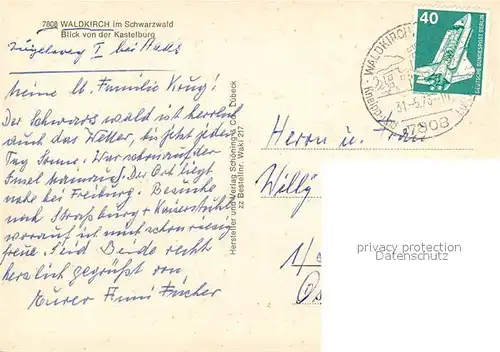 7808 WALDKIRCH im Schwarzwald
Blick von der Kastelburg
bei
Meine lb. Familie Krug!
Der Schwarzwald ist herrlich
auch das Wetter, bis jetzt jeden
Tag Sonne. War schon auf der
Insel Mainau. Der Ort liegt
nahe bei Freiburg. Besuche
noch Straßburg + Kaiserstuhl
worauf ich mich schon riesig
freue. Seid Beide recht
herzlich gegrüßt von
Eurer Anni Fischer
Hersteller und Verlag Schöning & Co., Lübeck
zz Bestellnr. Wakl 217
WALDKIRCH
Kneipp
31.-5.78
7808
40
DEUTSCHE BUNDESPOST BERLIN
Herrn u. Frau
Willy
1/
privacy protection
Datenschutz